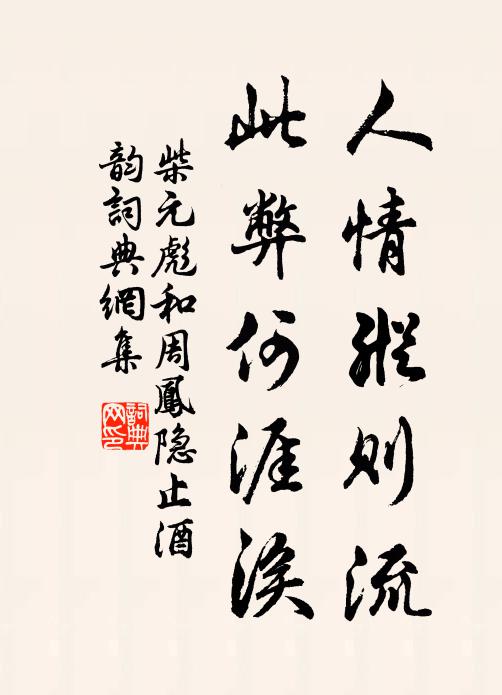 人情縱則流
此弊何涯涘
柴元彪和周鳳隐止酒
韵詞典網集
詞典网印